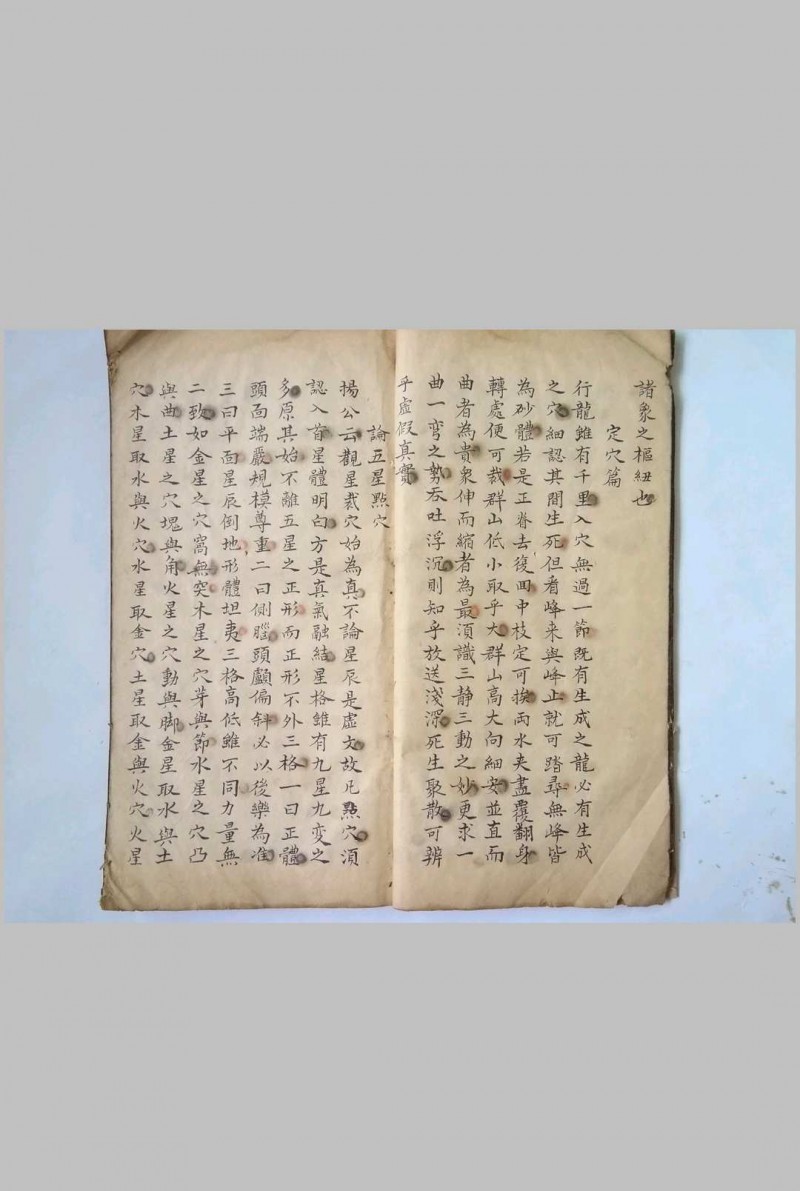 諸象之樞紐也
定穴篇
行龍雖有千里入穴無過一節既有生成之龍必有生成
之穴細認其間生死但看峰来與峰止就可踏尋無峰皆
為砂體若是正脊去復回中枝定可挨兩水夹盡覆翻身
轉處便可裁群山低小取乎大群山高大向細安並直而
曲者為貴衆伸而縮者為最須識三静三動之妙更求一
曲一弯之勢吞吐浮沉則知乎放送淺深死生聚散可辨
乎虛假真實
論五星點穴
楊公云觀星裁穴始為真不論星辰是虛文故凡點穴須
認入首星體明白方是真氣融結星格雖有九星九變之
多原其始不離五星之正形而正形不外三格一曰正體
頭面端嚴規模尊重二曰側腦頭顱偏斜必以後樂為准
三曰平面星辰倒地形體坦夷三格高低雖不同力量無
二致如金星之穴窩無突木星之穴芽與節水星之穴凸
與曲土星之穴塊與角火星之穴動與脚金星取水與土
穴木星取水與火穴水星取金穴土星取金與火穴火星